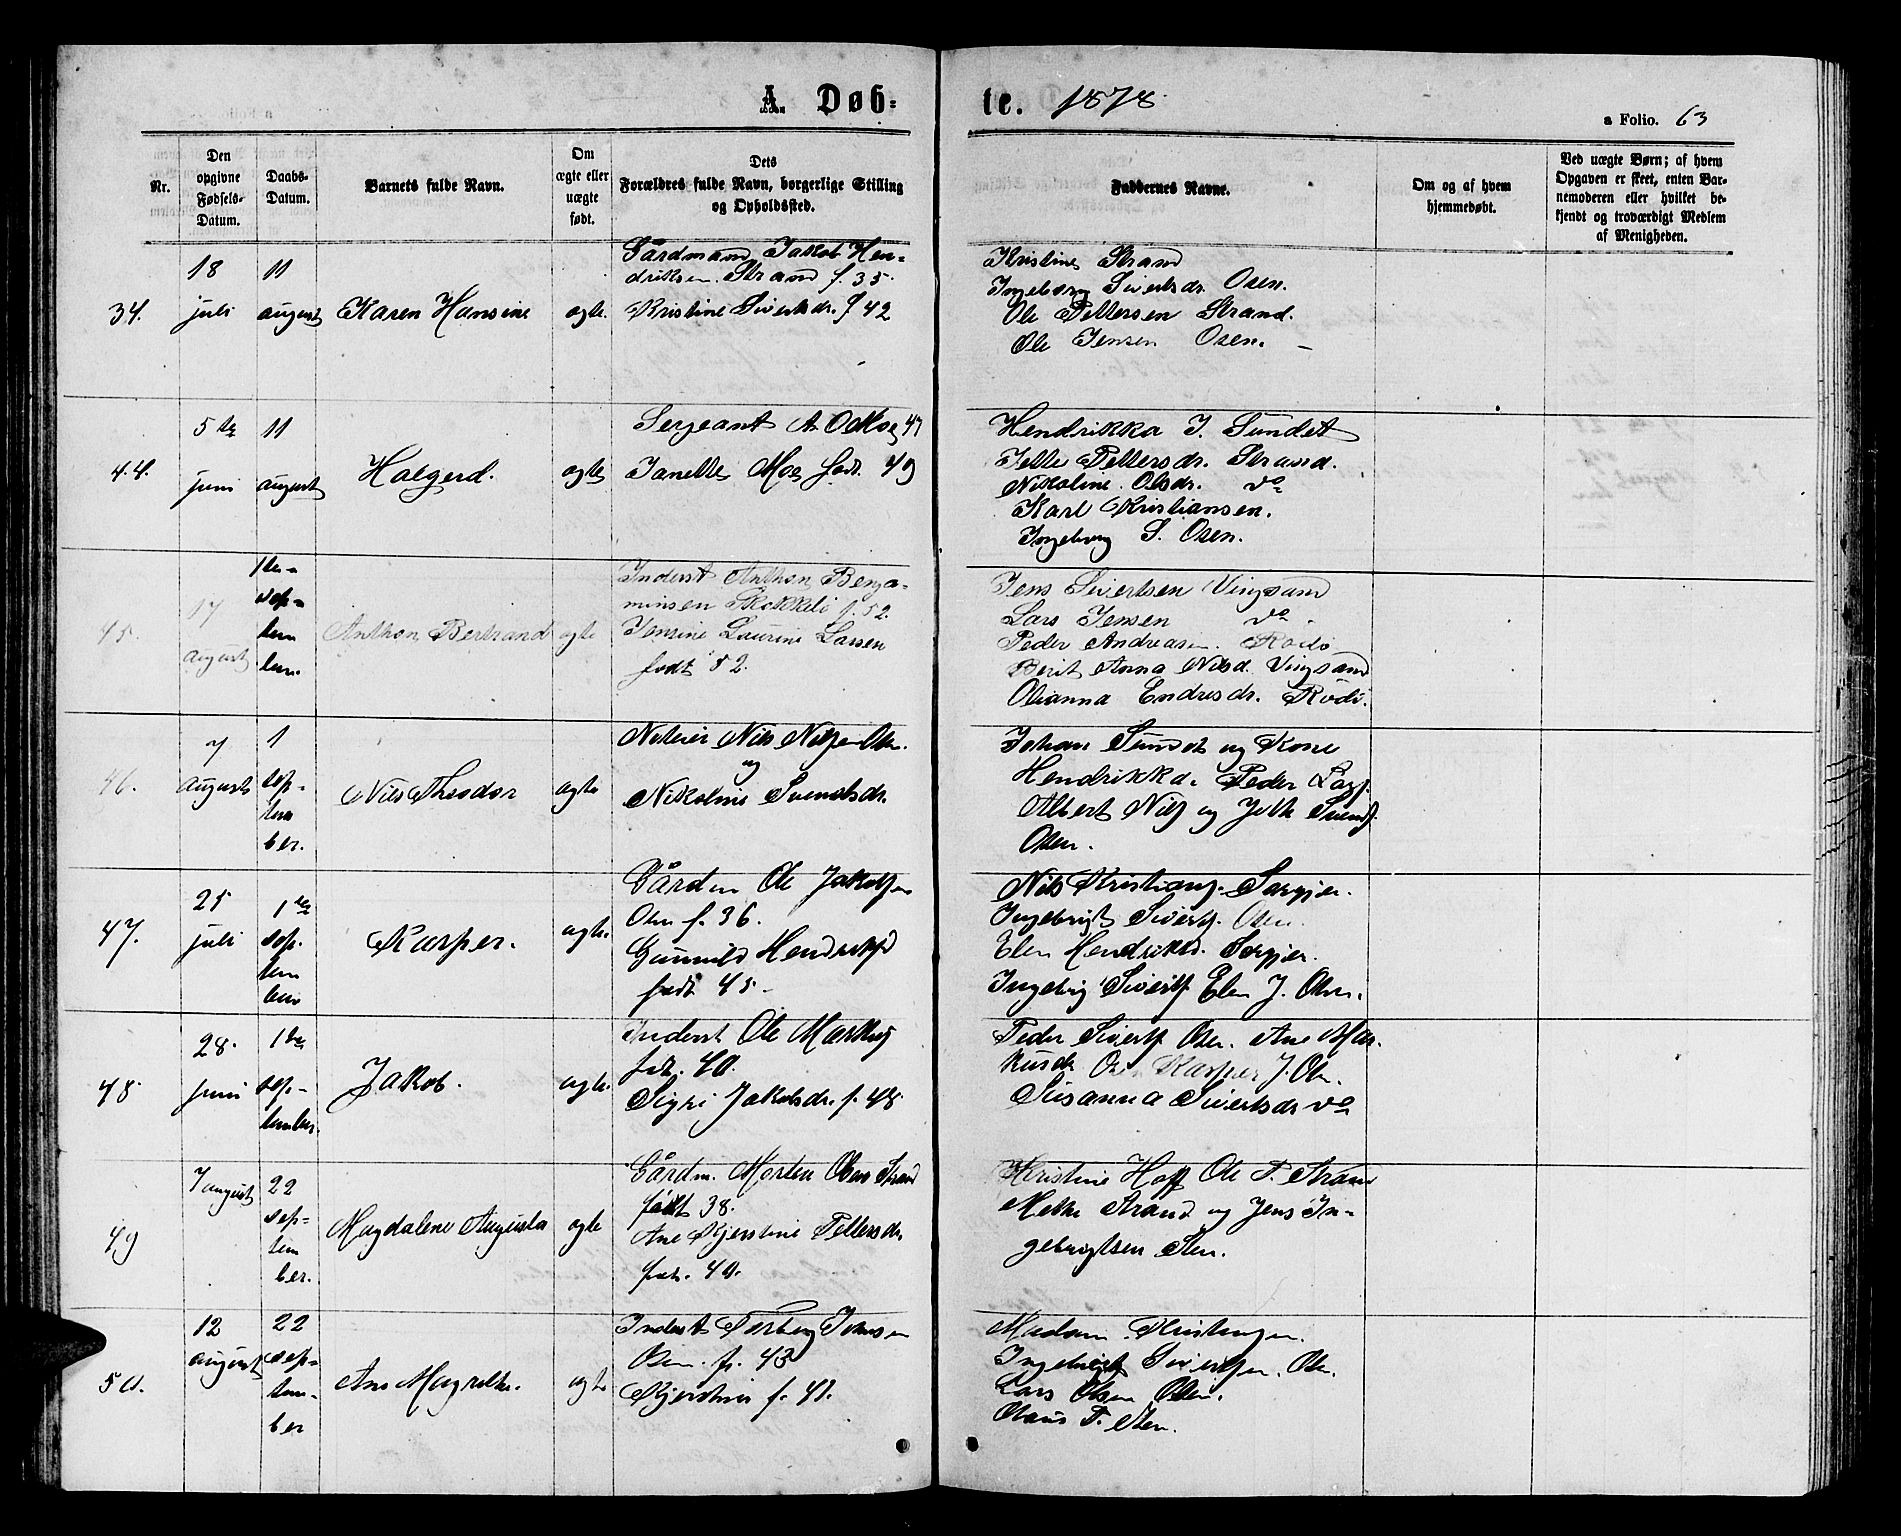 A. Døb-
te. 1878
a Folio. 63
Nr.
Den opgivne Fødsels-Datum.
Daabs-Datum.
Barnets fulde Navn.
Om ægte eller uægte født.
Dets Forældres fulde Navn, borgerlige Stilling og Opholdssted.
Faddernes Navne.
Om og af hvem hjemmedøbt.
Ved uægte Børn; af hvem Opgaven er skeet, enten Barnemoderen eller hvilket bekjendt og troværdigt Medlem af Menigheden.
34.
18 juli
11 august
Karen Hansine
ægte.
Gårdmand Jakob Hen-
driksen Strand f. 35.
Kristine Sivertsdr. f 42
Kristine Strand
Ingeborg Sivertsdr. Osen.
Ole Pettersen Strand.
Ole Jensen Osen. –
44.
5te juni
11 august
Halgerd.
ægte
Sergeant A O Moe 47
Janette Moe født. 49
Hendrikka J. Sundet
Jette Pettersdr. Strand.
Nikoline Olsdr. do
Karl Kristiansen.
Ingeborg S. Osen.
45.
17 august
1ste sep-
tem
ber.
Anthon Bertrand
ægte
Inderst Anthon Benja-
minsen Skokkelö f. 52.
Jensine Laurine Larsen
født 52.
Jens Sivertsen Vingsand
Lars Jensen do.
Peder Andreasen. Rodö
Berit Anna Nilsd. Vingsand
Olianna Endresdr. Rodö.
46.
7 august
1
sep-
tem
ber.
Nils Theodor
ægte
Nils Nilsen Osen.
og
Nikoline Svendsdr.
Johan Sundet og Kone
Hendrikka. Peder Lars.
Albert Nils og Jette Svends.
Osen.
47.
25 juli
1ste
sep.
tem
ber
Kasper.
ægte.
Gårdm Ole Jakobsen
Osen f. 36.
Gunnild Hendriksd
født 45.
Nils Kristians. Sørgjer.
Ingebrigt Siverts. Osen.
Elen Hendriksd. Sørgjer.
Ingebrig Siverts Elen J. Osen.
48.
28. juni
1ste
sep-
tember.
Jakob.
ægte.
Inderst Ole Markus
født. 40.
Sigri Jakobsdr. f. 48
Peder Siverts Osen. Ane Mar.
kusdr Osen Kasper J. Osen.
Susanna Sivertsdr do
49
7 august
22
sep-
tem
ber.
Magdalene Augusta
ægte
Gårdm. Morten Olsen Strand
født 38.
Ane Kjerstine Pettersdr.
født. 40.
Kristine Hoff Ole P. Strand
Mette Strand og Jens In-
gebrigtsen Sten.
50.
12 august
22
sep-
tem-
ber
Ane Magrethe.
ægte
Inderst Torberg Johnsen
Osen. f. 43
Kjerstine f. 41.
Madam Kristensen.
Ingebrigt Sivertsen. Osen.
Lars Olsen Osen.
Olaus T. Sten.